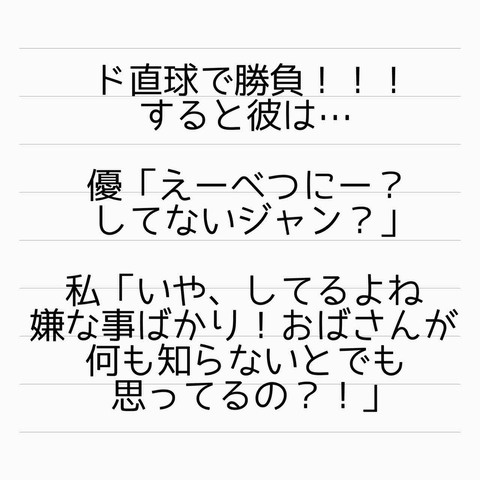 ド直球で勝負！！！
すると彼は…
優「えーべつにー？
してないジャン？」
私「いや、してるよね
嫌な事ばかり！おばさんが
何も知らないとでも
思ってるの？！」